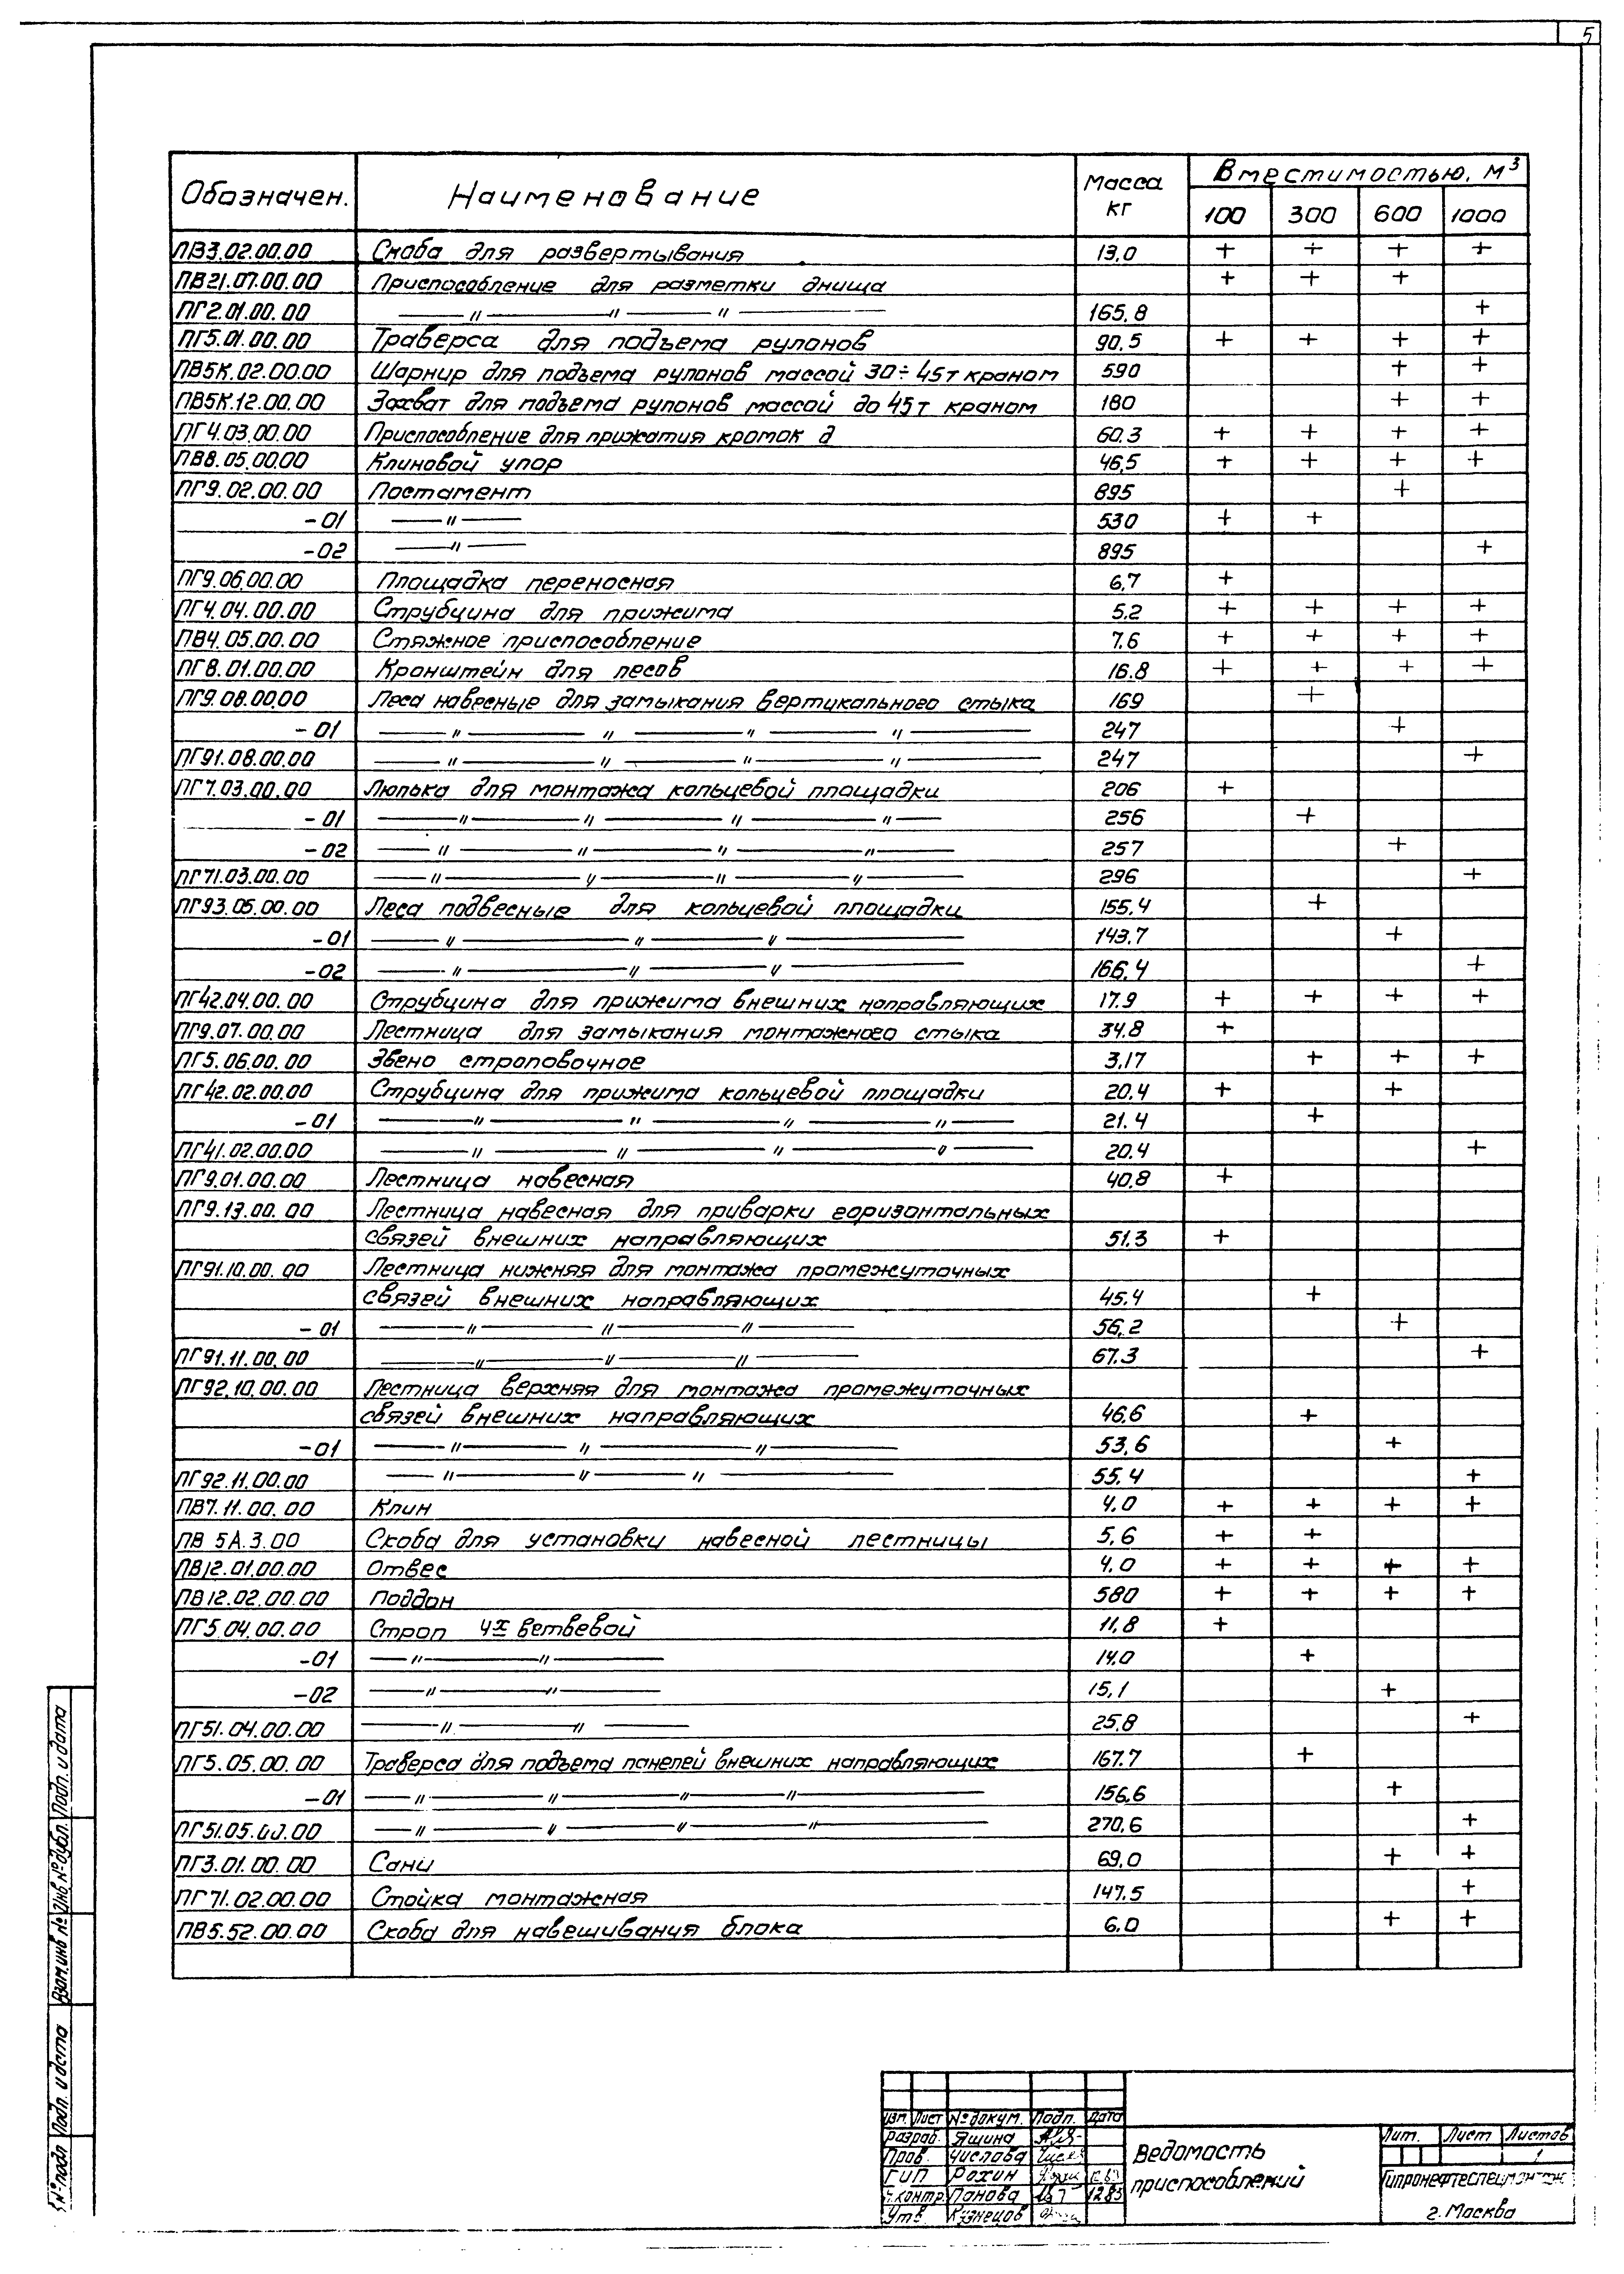 5
Обозначен. Наименование Масса кг Вместимостью, м³
100 300 600 1000
ПВ3.02.00.00 Скоба для развертывания 13,0 + + + +
ПВ21.07.00.00 Приспособление для разметки днища + + +
ПГ2.01.00.00 —〃—〃—〃— 165,8 +
ПГ5.01.00.00 Траверса для подъема рулонов 90,5 + + + +
ПВ5К.02.00.00 Шарнир для подъема рулонов массой 30÷45т краном 590 + +
ПВ5К.12.00.00 Захват для подъема рулонов массой до 45т краном 180 + +
ПГ4.03.00.00 Приспособление для прижатия кромок д 60.3 + + + +
ПВ8.05.00.00 Клиновой упор 46,5 + + + +
ПГ9.02.00.00 Постамент 895 +
-01 —〃— 530 + +
-02 —〃— 895 +
ПГ9.06.00.00 Площадка переносная 6,7 +
ПГ4.04.00.00 Струбцина для прижима 5.2 + + + +
ПВ4.05.00.00 Стяжное приспособление 7.6 + + + +
ПГ8.01.00.00 Кронштейн для лесов 16.8 + + + +
ПГ9.08.00.00 Леса навесные для замыкания вертикального стыка 169 +
-01 —〃—〃—〃—〃— 247 +
ПГ91.08.00.00 —〃—〃—〃—〃— 247 +
ПГ7.03.00.00 Люлька для монтажа кольцевой площадки 206 +
-01 —〃—〃—〃—〃— 256 +
-02 —〃—〃—〃—〃— 257 +
ПГ71.03.00.00 —〃—〃—〃—〃— 296 +
ПГ93.05.00.00 Леса подвесные для кольцевой площадки 155.4 +
-01 —〃—〃—〃— 143.7 +
-02 —〃—〃—〃— 166.4 +
ПГ42.04.00.00 Струбцина для прижима внешних направляющих 17.9 + + + +
ПГ9.07.00.00 Лестница для замыкания монтажного стыка 34.8 +
ПГ5.06.00.00 Звено строповочное 3,17 + + +
ПГ42.02.00.00 Струбцина для прижима кольцевой площадки 20.4 + +
-01 —〃—〃—〃—〃— 21.4 +
ПГ41.02.00.00 —〃—〃—〃—〃— 20.4 +
ПГ9.01.00.00 Лестница навесная 40.8 +
ПГ9.13.00.00 Лестница навесная для приварки горизонтальных
связей внешних направляющих 51.3 +
ПГ91.10.00.00 Лестница нижняя для монтажа промежуточных
связей внешних направляющих 45.4 +
-01 —〃—〃—〃— 56.2 +
ПГ91.11.00.00 —〃—〃—〃— 67.3 +
ПГ92.10.00.00 Лестница верхняя для монтажа промежуточных
связей внешних направляющих 46.6 +
-01 —〃—〃—〃— 53,6 +
ПГ92.11.00.00 —〃—〃—〃— 55.4 +
ПВ7.11.00.00 Клин 4.0 + + + +
ПВ 5А.3.00 Скоба для установки навесной лестницы 5,6 + +
ПВ12.01.00.00 Отвес 4,0 + + + +
ПВ12.02.00.00 Поддон 580 + + + +
ПГ5.04.00.00 Строп 4х ветвевой 11,8 +
-01 —〃—〃— 14.0 +
-02 —〃—〃— 15,1 +
ПГ51.04.00.00 —〃—〃— 25.8 +
ПГ5.05.00.00 Траверса для подъема панелей внешних направляющих 167.7 +
-01 —〃—〃—〃—〃— 156,6 +
ПГ51.05.00.00 —〃—〃—〃—〃— 270,6 +
ПГ3.01.00.00 Сани 69,0 + +
ПГ71.02.00.00 Стойка монтажная 147.5 +
ПВ5.52.00.00 Скоба для навешивания блока 6.0 + +
Изм. Лист № докум. Подп. Дата
Разраб. Яшина
Пров. Числова
ГИП Рохин
Н.контр. Панова 12.85
Утв. Кузнецов
Ведомость
приспособлений
Лит. Лист Листов
1
Гипронефтеспецмонтаж
г. Москва
№ подл Подп. и дата Взам.инв № Инв.№дубл. Подп. и дата